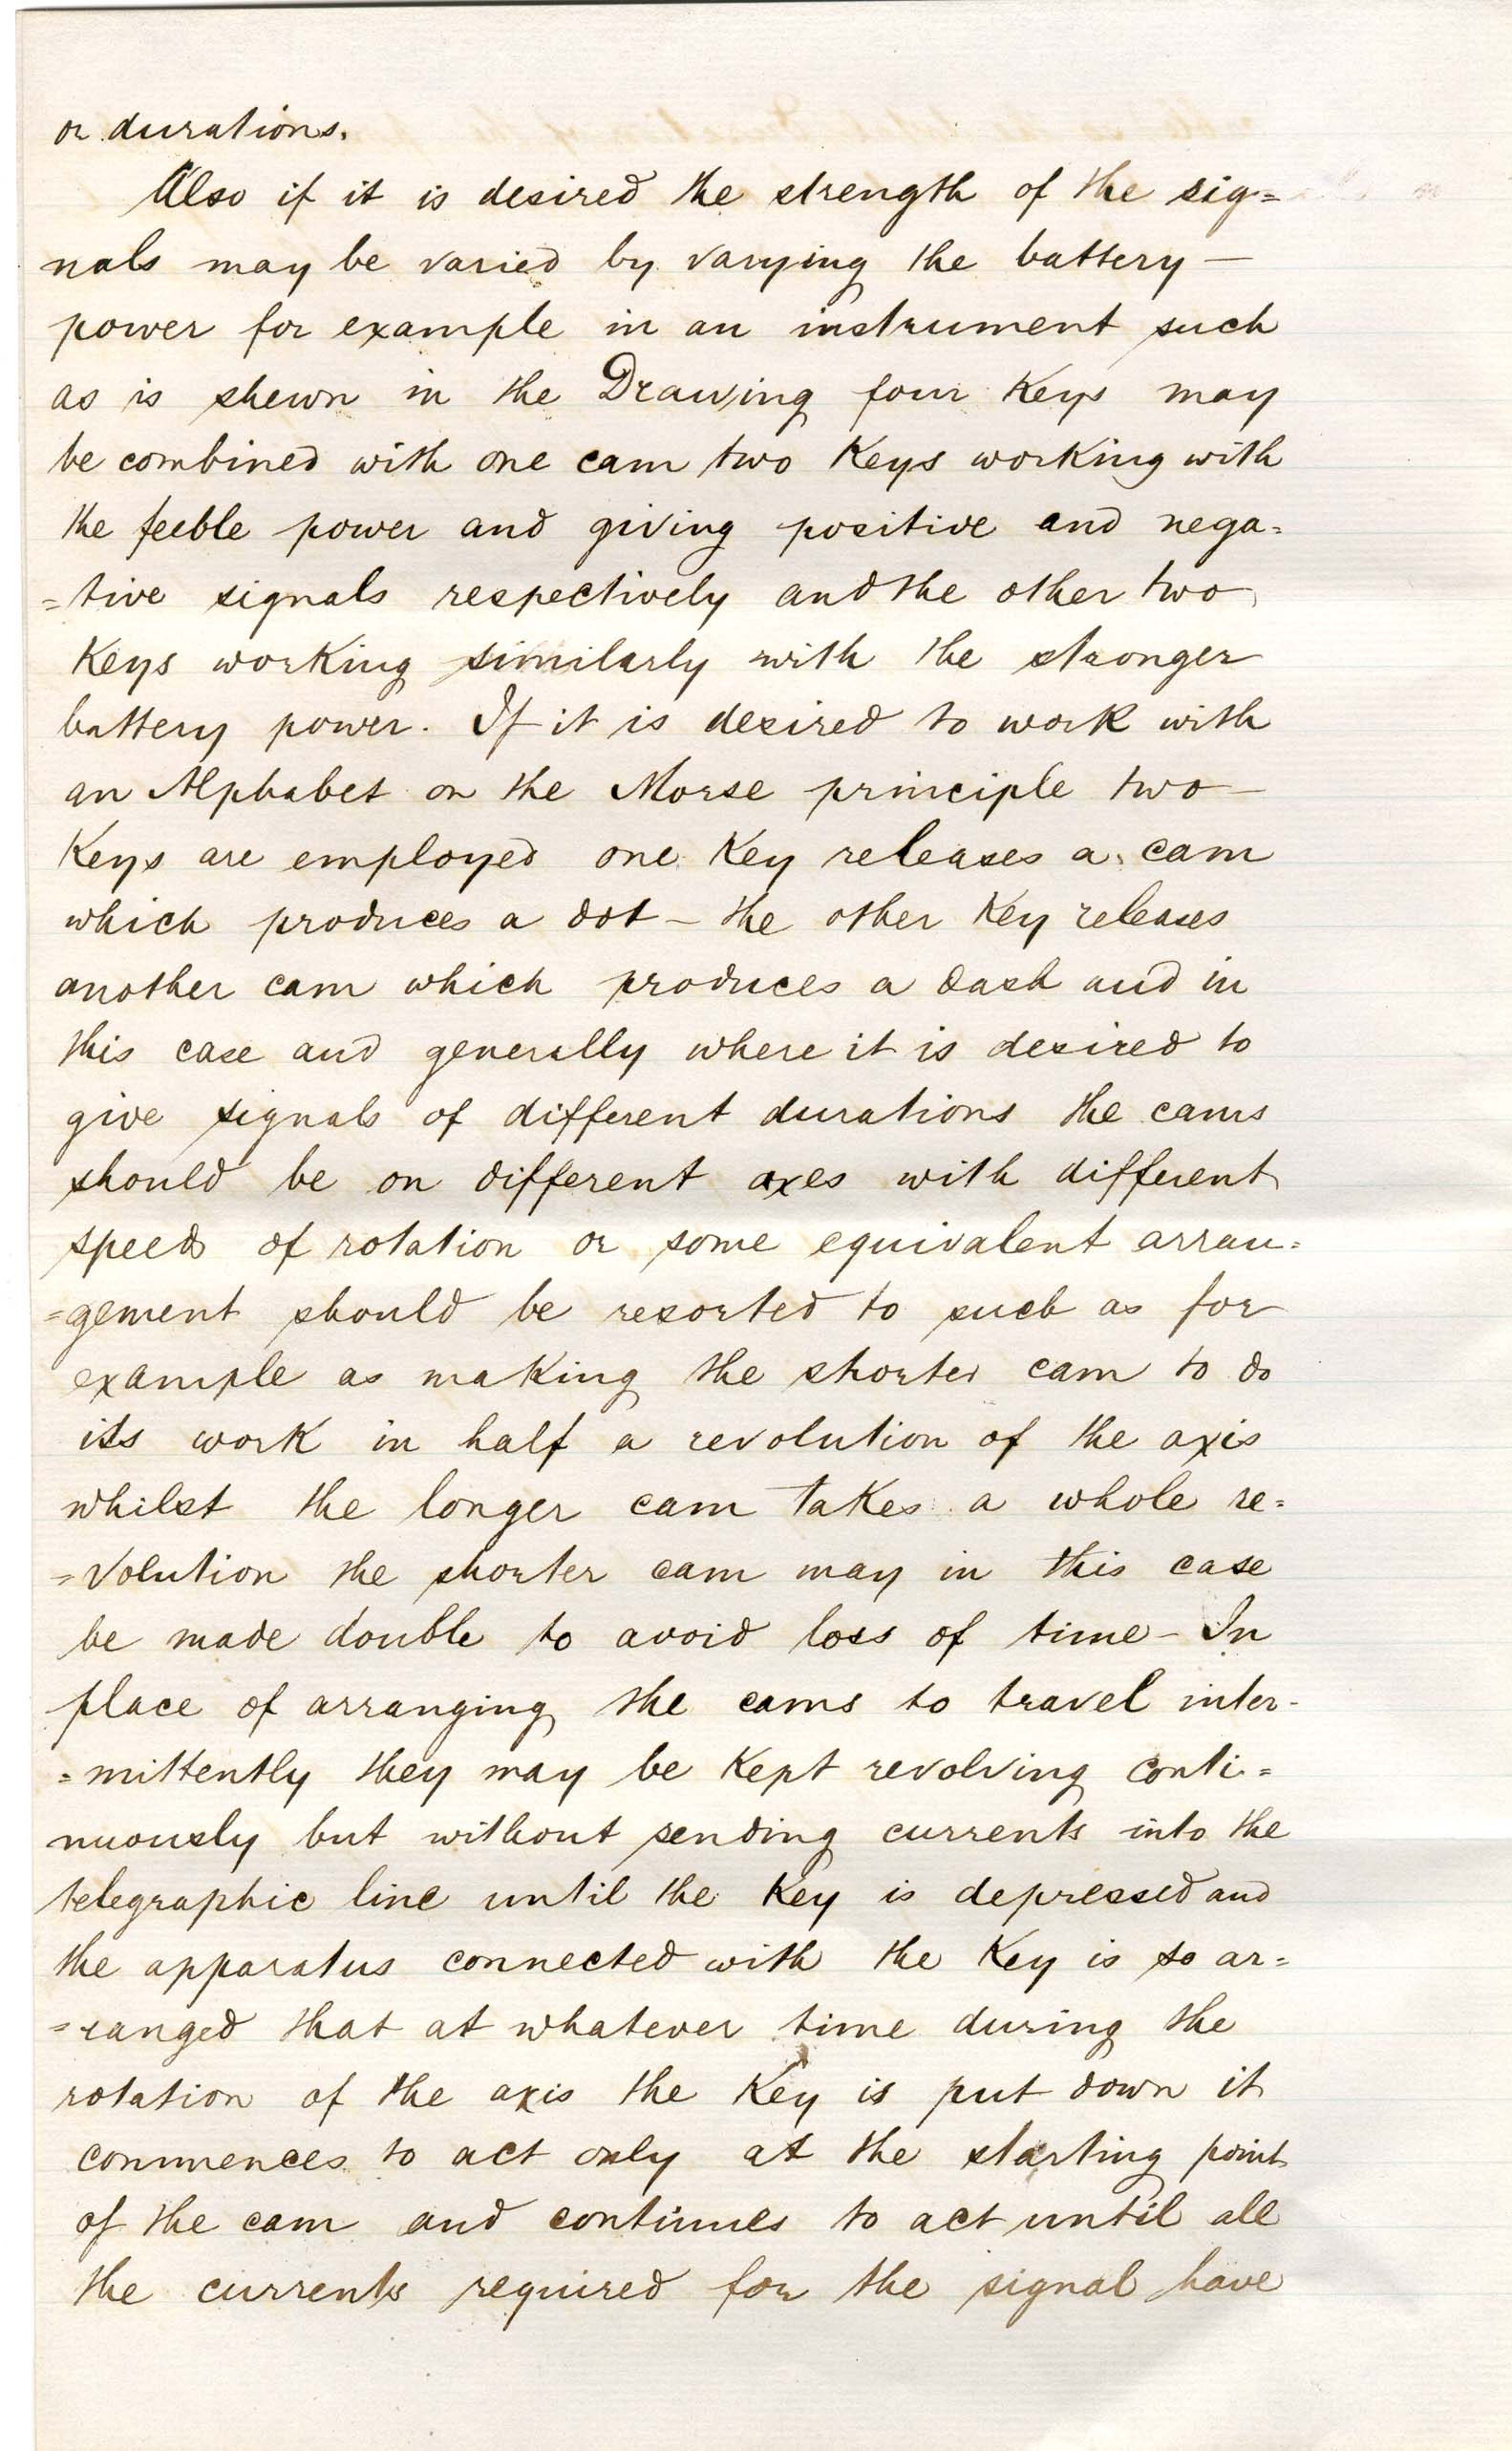 or durations.
Also if it is desired the strength of the sig=
nals may be varied by varying the battery —
power for example in an instrument such
as is shewn in the Drawing four Keys may
be combined with one cam two Keys working with
the feeble power and giving positive and nega=
=tive signals respectively and the other two
Keys working similarly with the stronger
battery power. If it is desired to work with
an Alphabet on the Morse principle two —
Keys are employed one Key releases a cam
which produces a dot — the other Key releases
another cam which produces a dash and in
this case and generally where it is desired to
give signals of different durations the cams
should be on different axes with different
speeds of rotation or some equivalent arran=
=gement should be resorted to such as for
example as making the shorter cam to do
its work in half a revolution of the axis
whilst the longer cam takes a whole re=
=volution the shorter cam may in this case
be made double to avoid loss of time — In
place of arranging the cams to travel inter-
=mittently they may be Kept revolving conti=
nuously but without sending currents into the
telegraphic line until the Key is depressed and
the apparatus connected with the Key is so ar=
=ranged that at whatever time during the
rotation of the axis the Key is put down it
commences to act only at the starting point
of the cam and continues to act until all
the currents required for the signal have